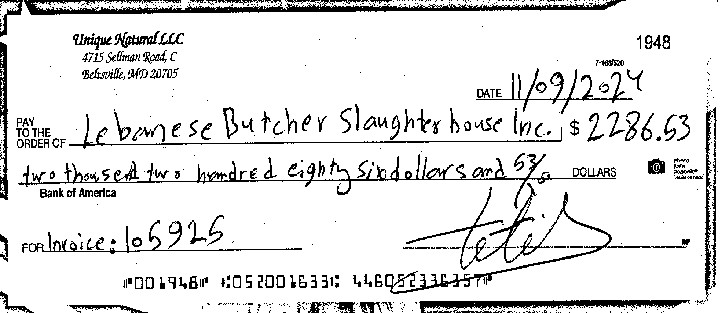 Unique Natural LLC
4715 Sellman Road, C
Beltsville, MD 20705
1948
DATE 11/09/2024
PAY TO THE ORDER OF Lebanese Butcher Slaughter house Inc. $ 2286.53
two thousend two hundred eighty six dollars and 53/ DOLLARS
Bank of America
FOR Invoice: 105925
⑈001948⑈ ⑆052001633⑆